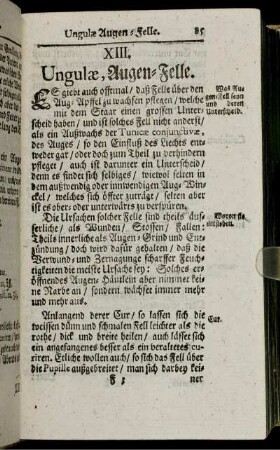 Ungulæ Augen-Felle. 85
XIII.
Ungulæ, Augen-Felle.
ES giebt auch offtmal / daß Felle über den
Aug-Apffel zu wachsen pflegen / welche
mit dem Staar einen grossen Unter-
scheid haben / und ist solches Fell nicht anderst / als
ein Außwachs der Tunicæ conjunctivæ,
des Auges / so den Einfluß des Liechts ent-
weder gar / oder doch zum Theil zu verhindern
pflege / auch ist darunter ein Unterscheid /
denn es findet sich selbiges / wiewol selten in
dem außwendig oder innwendigen Aug-Win-
ckel / welches sich öffter zuträgt / selten aber
ist es ober- oder unterwärts zu verspühren.
Was Au-
gen-Fell seyn
und deren
Unterscheid.
Die Ursachen solcher Felle sind theils äus-
serliche / als Wunden / Stossen / Fallen:
Theils innerliche als Augen-Grind und Ent-
zündung / doch wird dafür gehalten / daß die
Verwund- und Zernagunge scharffer Feuch-
tigkeiten die meiste Ursache sey: Solches er-
öffnendes Augen-Häutlein aber nimmer kei-
ne Narbe an / sondern wächset immer mehr
und mehr aus.
Woraus sie
entstehen.
Anlangend derer Cur / so lassen sich die
weissen dünn und schmalen Fell leichter als die
rothe / dick und breite heilen / auch lässet sich
ein angefangenes besser als ein veraltetes cu-
riren. Etliche wollen auch / so sich das Fell über
die Pupille außgebreitet / man sich darbey kei-
Cur.
ner